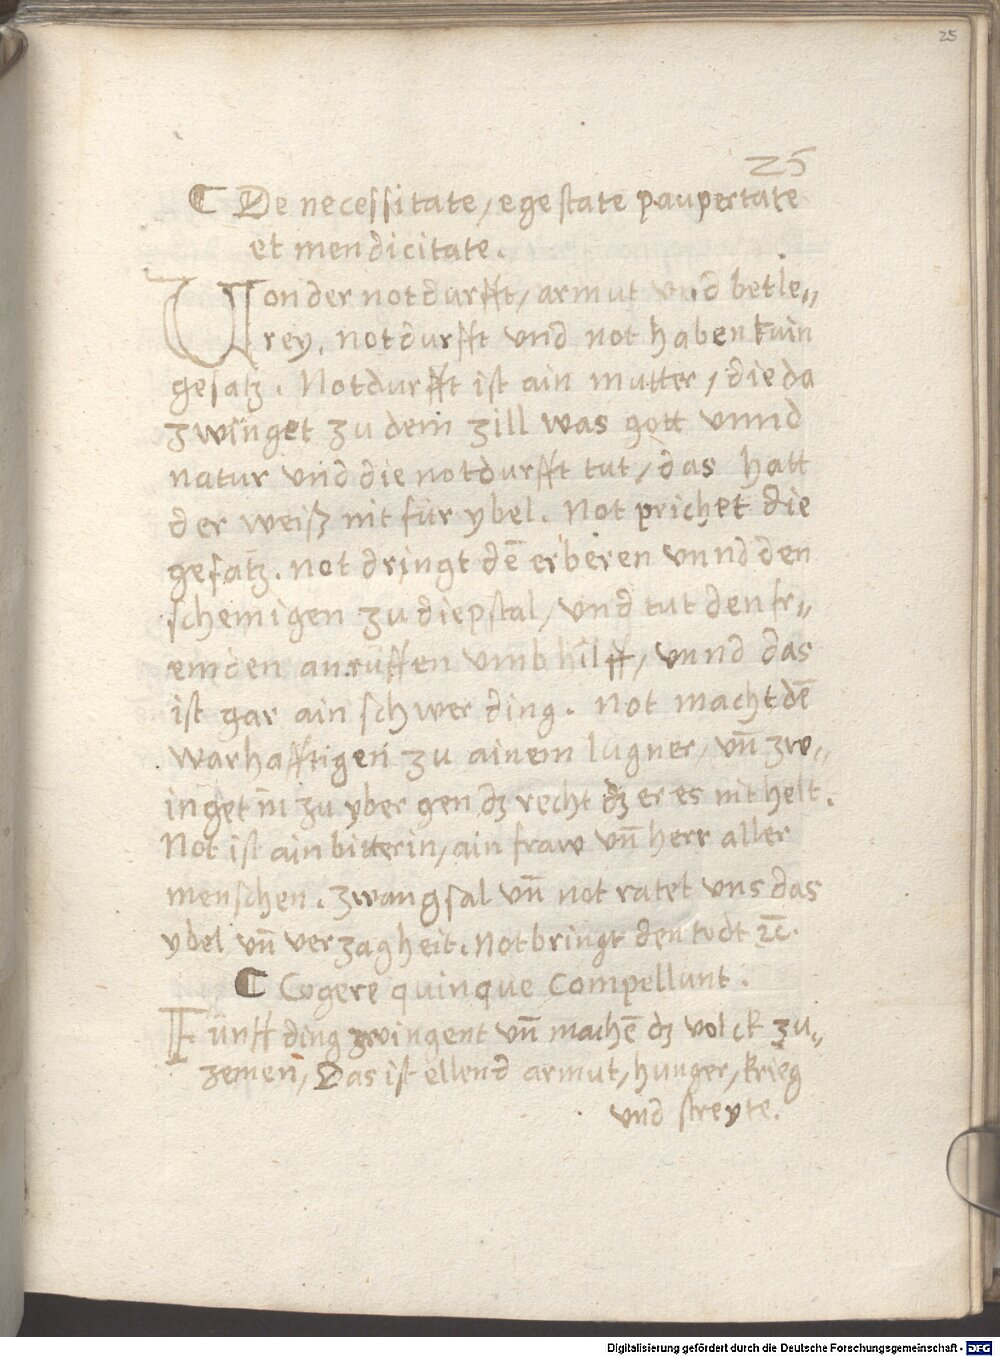 25
25
¶ De necessitate, egestate paupertate
et mendicitate.
Von der notdurfft, armut vnd betle„
rey. notdurfft vnd not haben kain
gesatz. Notdurfft ist ain mutter, die da
zwinget zu dem zill was gott vnnd
natur vnd die notdurfft tut, das hatt
der weiß nit für ybel. Not prichet die
gesatz. not dringt dē erberen vnnd den
schemigen zu diepstal, vnd tut den fr„
emden anrüffen vmb hilff, vnnd das
ist gar ain schwer ding. Not macht dē
warhafftigen zu ainem lugner, vn̄ zw„
inget in zu yber gen dz recht dz er es nit helt.
Not ist ain bitterin, ain fraw vn̄ herr aller
menschen. zwangsal vn̄ not ratet vns das
ybel vn̄ verzagheit. Not bringt den todt ꝛc̄.
¶ Cogere quinque Compellunt.
Fünff ding zwingent vn̄ machē dz volck zu„
zemen, Das ist ellend armut, hunger, krieg
vnd streyte.
Digitalisierung gefördert durch die Deutsche Forschungsgemeinschaft - DFG